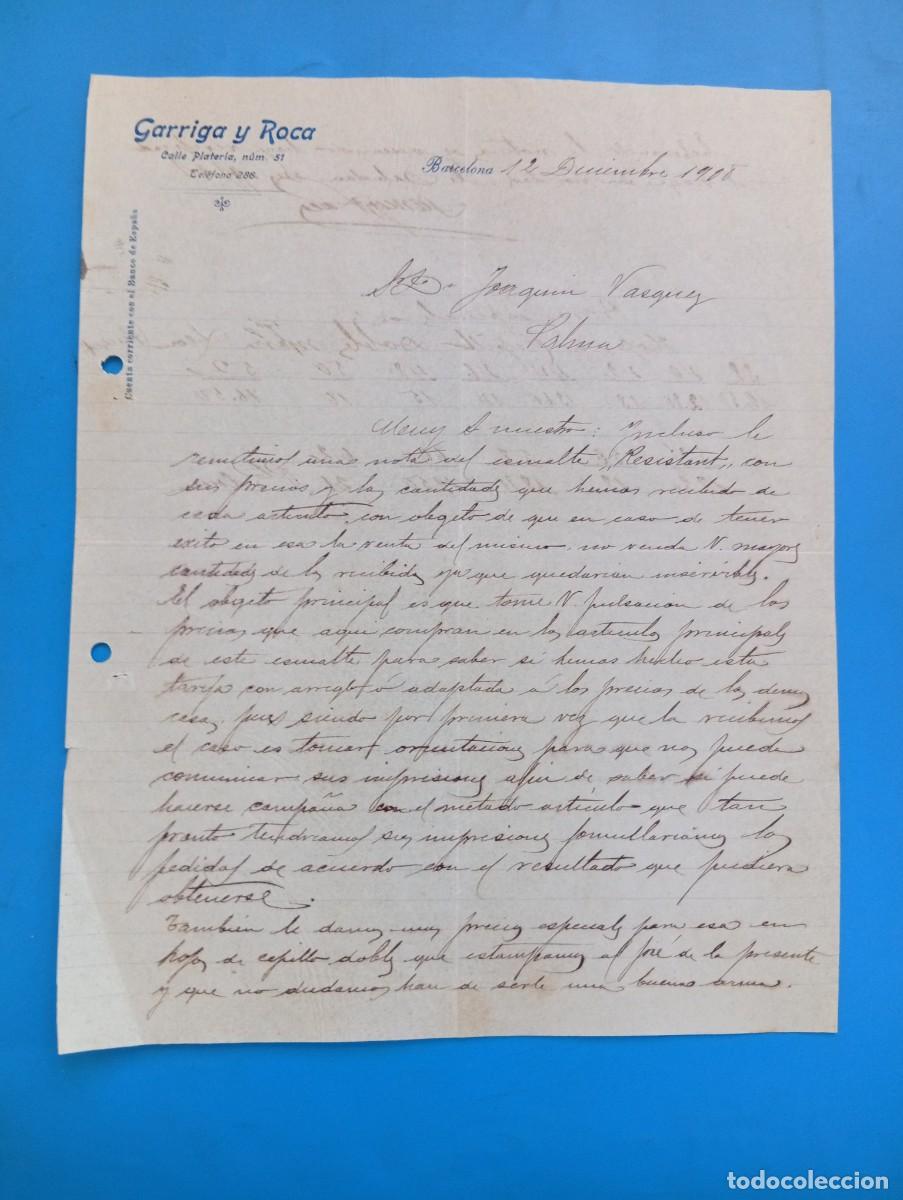 Garriga y Roca
Calle Platería, núm. 51
Teléfono 286
Barcelona 12 Diciembre 1908
Cuenta corriente con el Banco de España
Joaquin Vasquez
Palma
Muy S nuestro: Incluso le
remitimos una nota del esmalte „Resistant„ con
sus precios y las cantidades que hemos recibido de
cada articulo con obgeto de que en caso de tener
exito en esa la venta del mismo, no venda V. mayores
cantidades de las recibidas ya que quedarian inservibles.
El obgeto principal es que tome V. pulsacion de los
precios que aqui compran en los articulos principales
de este esmalte para saber si hemos hecho esta
tarifa con arreglo ó adaptada á los precios de las demas
casas, pues siendo por primera vez que la recibimos
el caso es tomar orientaciones para que nos pueda
comunicar sus impresiones afin de saber si puede
hacerse campaña con el metado artículo que tan
pronto tendreamos sus impresiones formullariamos los
pedidos de acuerdo con el resultado que pudiera
obtenerse.
Tambien le damos unos precios especiales para esa en
hojas de cepillo dobles que estampamos al pié de la presente
y que no dudamos han de serle una buena arma.
todocoleccion